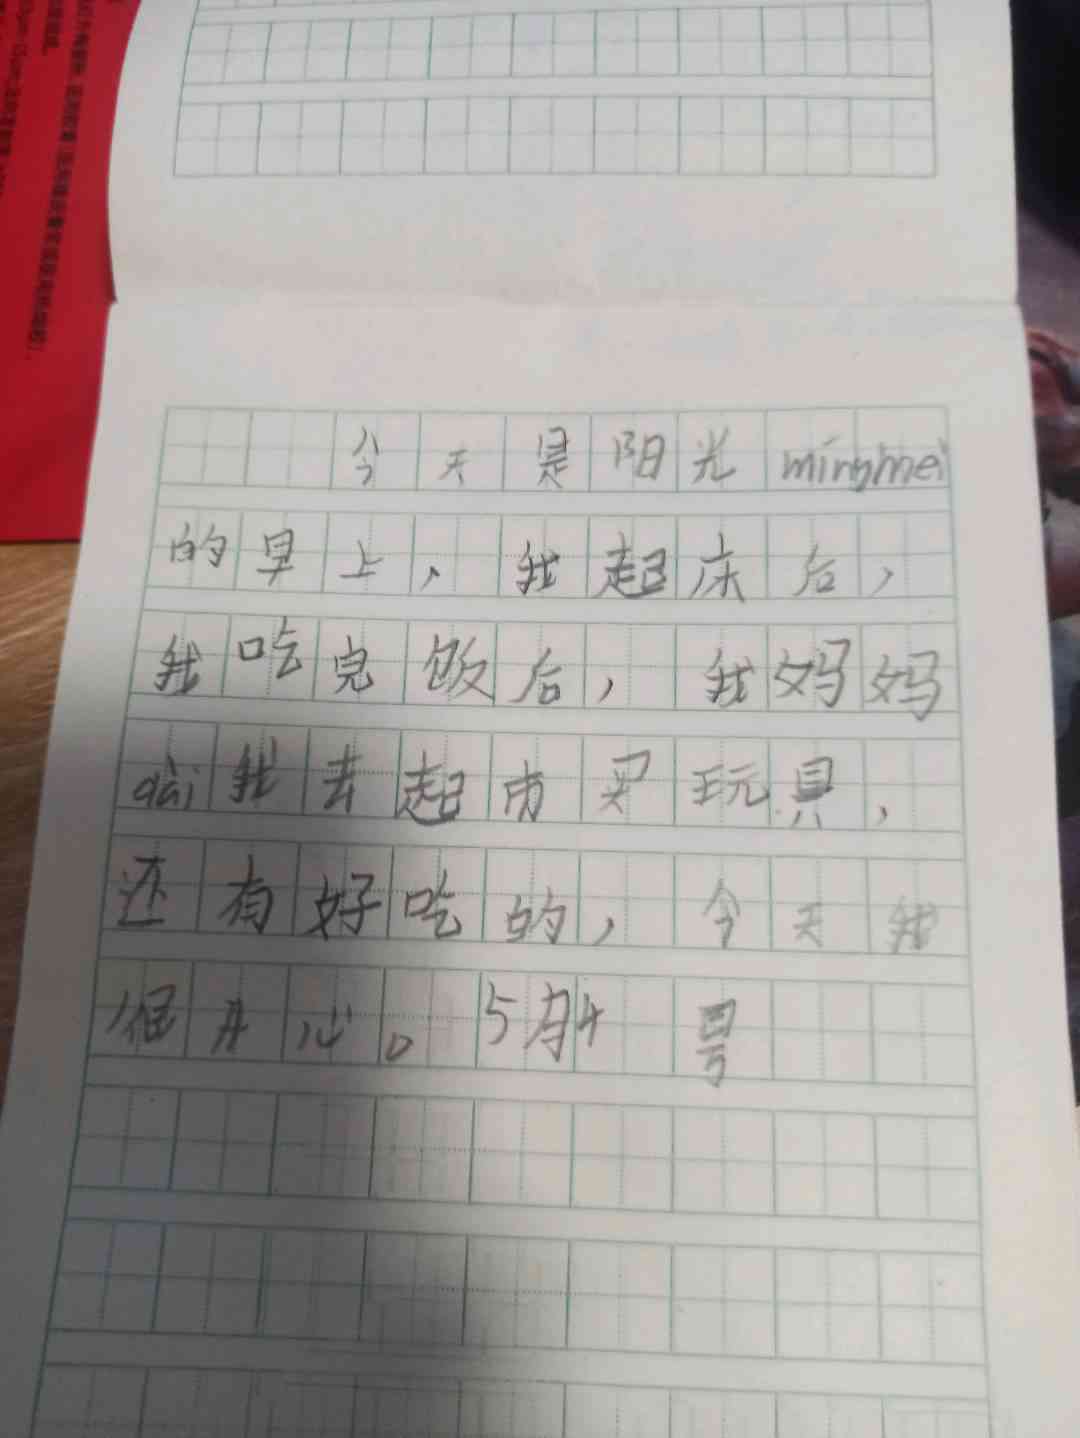 今天是阳光míngmèi
的早上，我起床后，
我吃完饭后，我妈妈
dài我去起市买玩具，
还有好吃的，今天我
很开心。5月4号